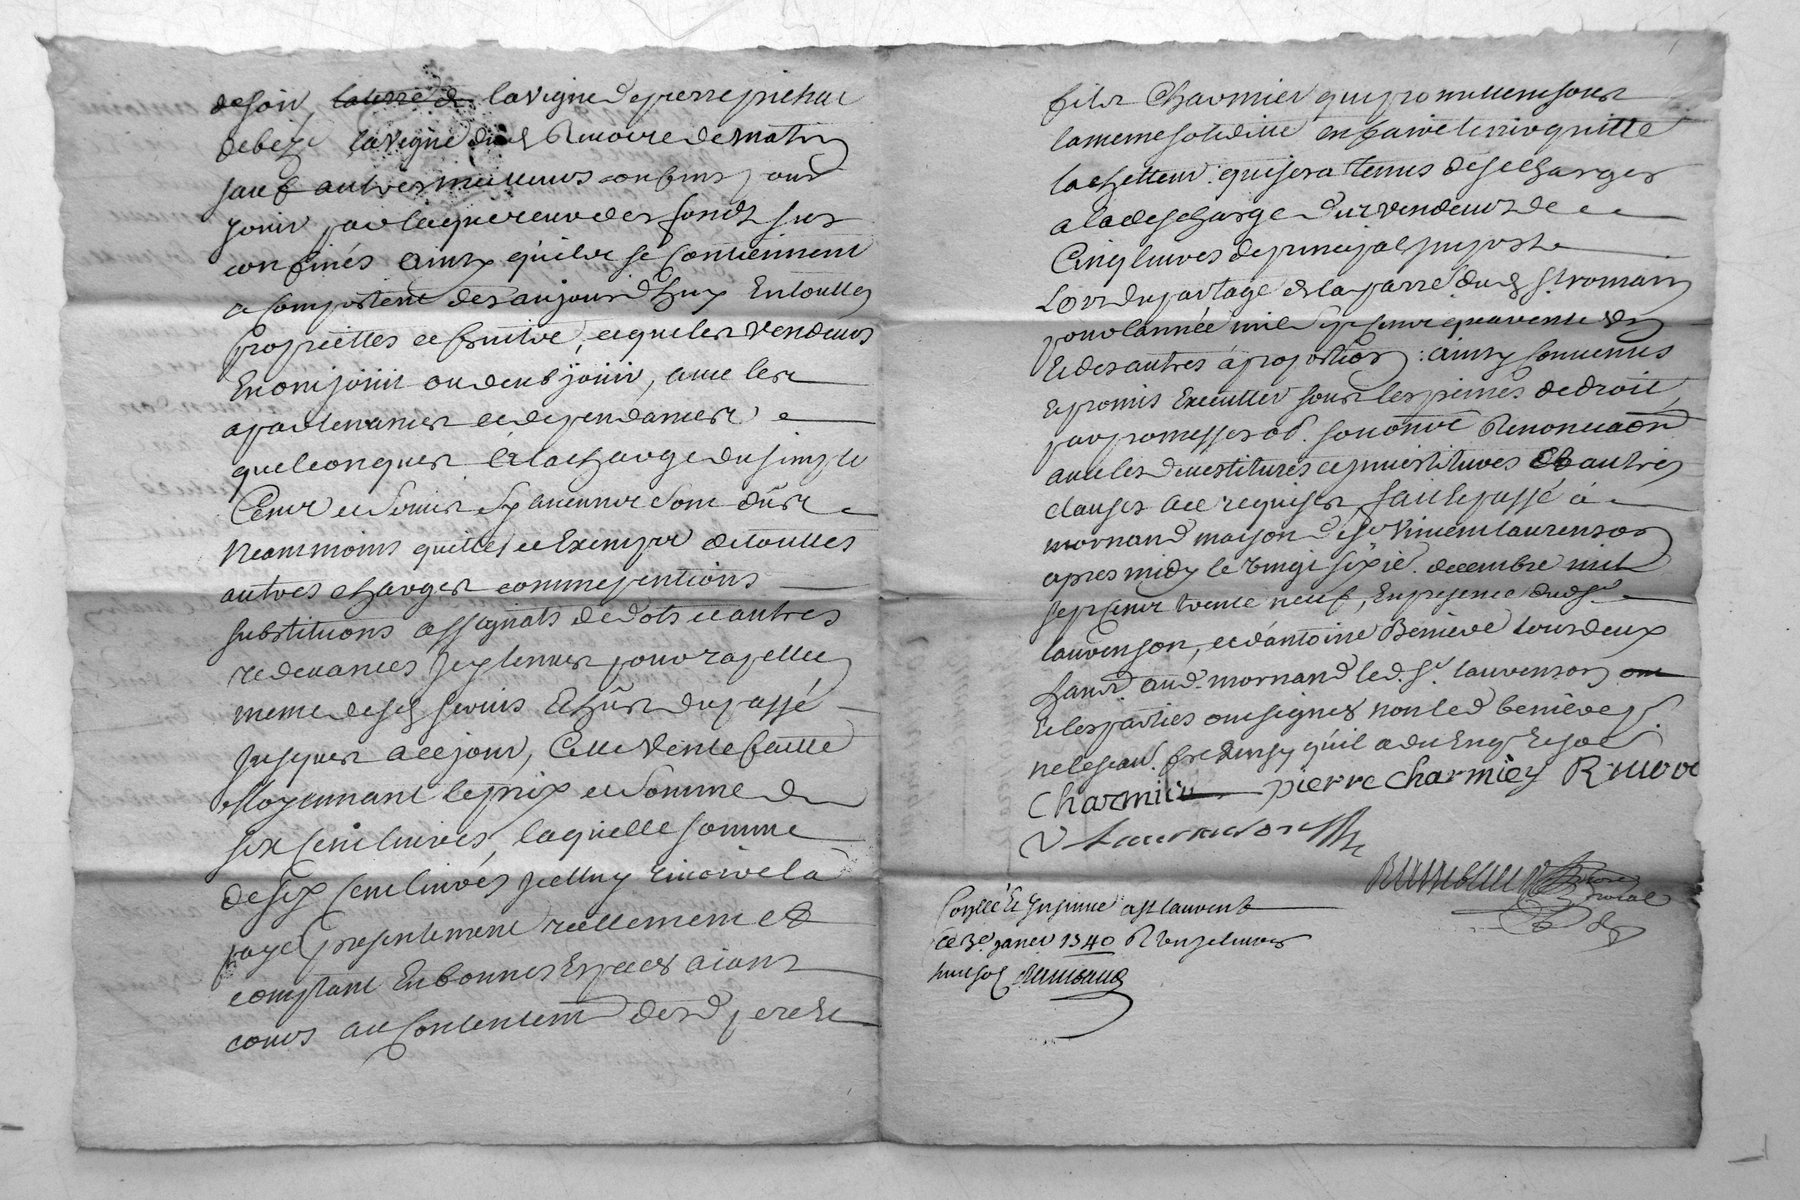 de soir, la terre de la vigne de pierre pichat
de bize la vigne dud Rivoire de matin
sauf autres meilleurs confins pour
jouir par laquereur des fonds sus
confinés ainsy qu'ils se contiennent
& comportent des aujourd'huy En touttes
proprietés et fruitre, et que les vendeurs
En ont joüit ou deub joüir, avec les
apartenances et dependances
quelconques & a la charge du simple
Cens et servis sy aucuns sont dûs
Neanmoins quitte et Exempt de touttes
autres charges comme pentions
substitutions assignats de dots et autres
redevances
meme desd servis Echûs du passé
jusques a ce jour, Cette vente faitte
Moyennant le prix et somme de
six cent livres, laquelle somme
de six cent livres icelluy Rivoire la
payé presentement reellement et
comptant En bonnes Especes aiant
cours au Contentement desd pere et
fils Charmier qui promettent sous
la meme solidité en faire tenir quitte
lachetteur, qui sera tenus de se charger
a la descharge des vendeurs de
Cinq livres de principal imposte
Lors du partage de la parre dud St romain
pour lannée mil sept cent quarente
& des autres à proportion : ainsy convenus
& promis Executter sous les peines de droit,
par promesses ob. Renonciaon
avec les devestitures et investitures & autres
clauses a ce requises fait & passé à
mornand maison de sr Vincent laurenson
apres midy le vingt sixie. decembre mil
sept cent trente neuf, En presence dud sr
laurenson, et d'antoine Beniere tous deux
hants aud. mornand led. sr. laurenson
& les parties ont signés non led beniere p.
ne le scav. fre Ensy qu'il a dit Enq & som
Charmier pierre Charmiey Rivoire
V Laurenson
notre
royal
Conllé & Insinué a St laurent
ce 3e janer 1740 R
huit sols